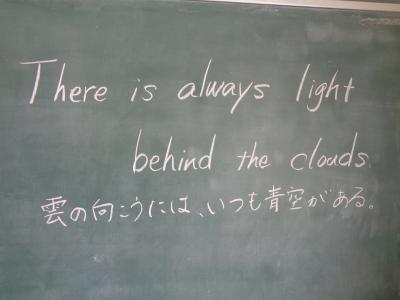 There is always light
behind the clouds.
雲の向こうには、いつも青空がある。